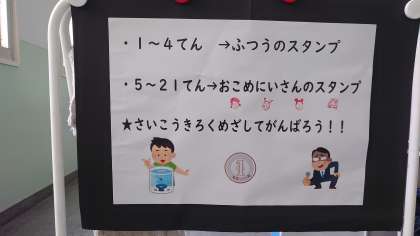 ・１～４てん　→ふつうのスタンプ
・５～２１てん→おこめにいさんのスタンプ
★さいこうきろくめざしてがんばろう！！
1